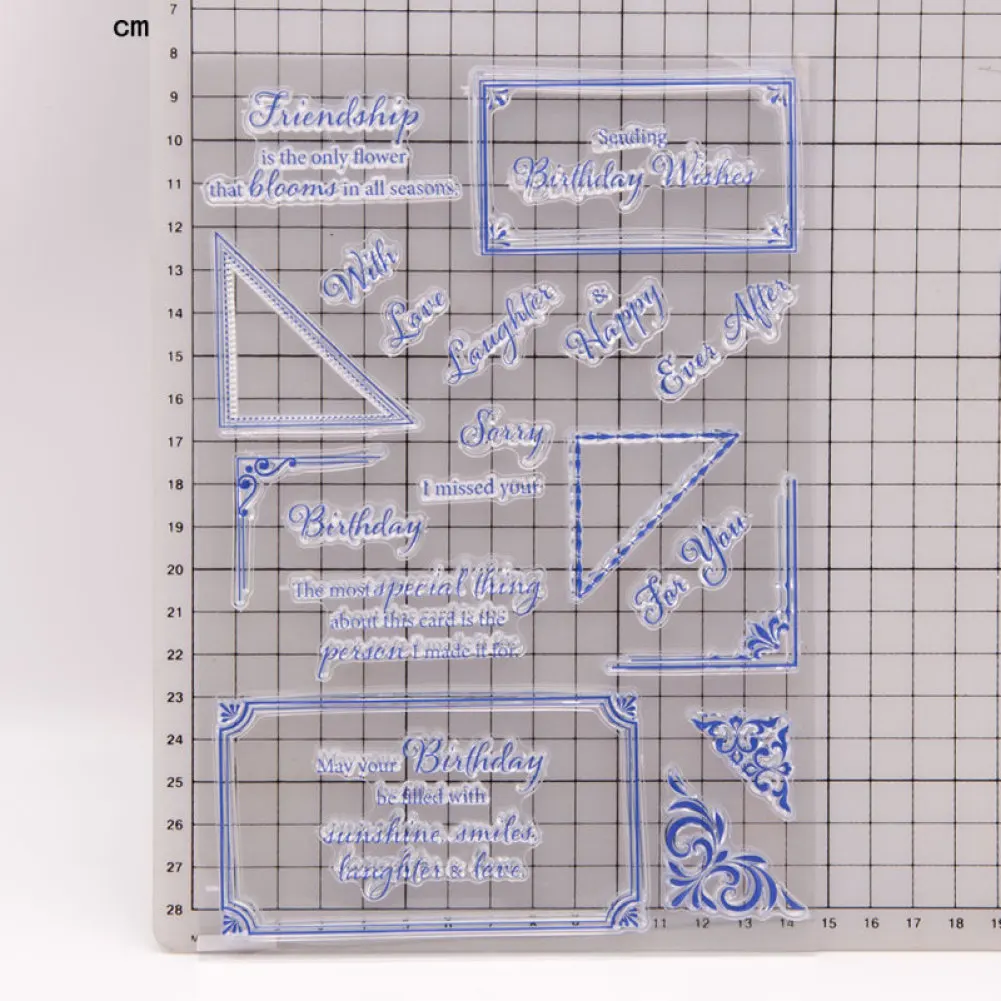 cm
7
8
9
10
11
12
13
14
15
16
17
18
19
20
21
22
23
24
25
26
27
28
Friendship
is the only flower
that blooms in all seasons.
Sending
Birthday Wishes
With
Love
Laughter
& Happy
Ever After
Sorry
I missed your
Birthday
The most special thing
about this card is the
person I made it for.
For You
May your Birthday
be filled with
sunshine, smiles,
laughter & love.
11 12 13 14 15 16 17 18 19